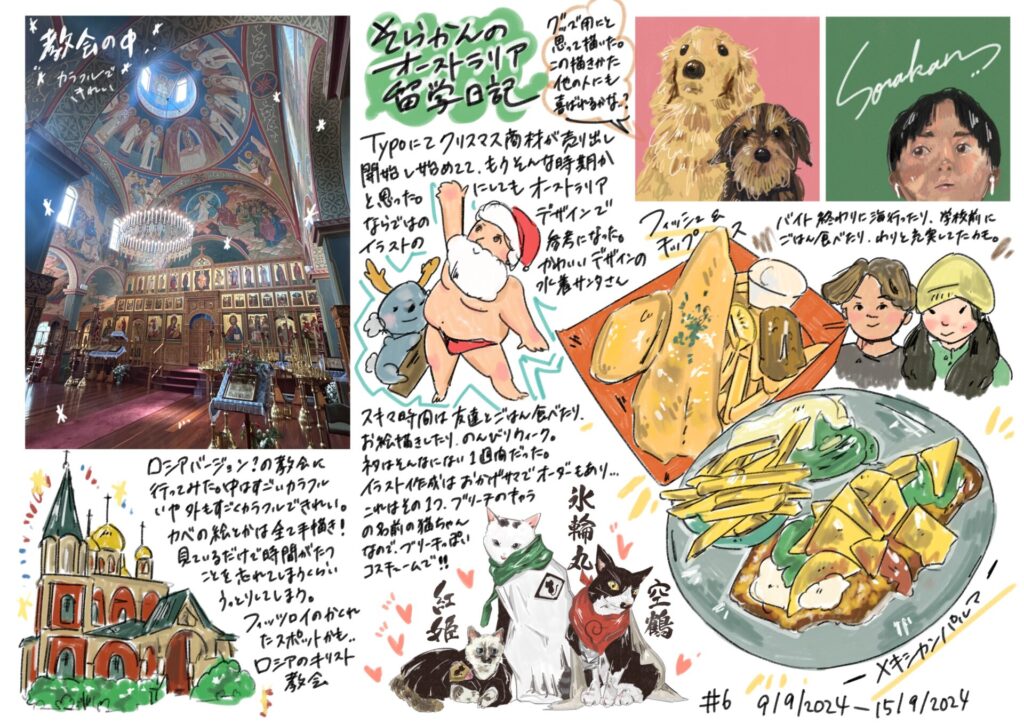 教会の中..
カラフルで
きれい
そらかんの
オーストラリア
留学日記
グッズ用にと
思って描いた。
この描きかた
他の人にも
喜ばれるかな..?
Sorakan...
Typoにてクリスマス商材が売り出し
開始し始めてて、もうそんな時期か
と思った。にしてもオーストラリア
ならではのデザインで
イラストの参考になった。
かわいいデザインの
水着サンタさん
フィッシュ&
チップス
バイト終わりに海行ったり、学校前に
ごはん食べたり、わりと充実してたかも。
スキマ時間は友達とごはん食べたり、
お絵描きしたり、のんびりウィーク。
ネタはそんなにない1週間だった。
イラスト作成はおかげサマでオーダーもあり...
これはその1つ、ブリーチのキャラ
の名前の猫ちゃん
なので、ブリーチっぽい
コスチュームで!!
氷輪丸
紅姫
空鶴
ロシアバージョン?の教会に
行ってみた。中はすごいカラフル
いや外もすごくカラフルできれい。
カベの絵とかは全て手描き!
見ているだけで時間がたつ
ことを忘れてしまうくらい
うっとりしてしまう。
フィッツロイのかくれ
たスポットかも..
ロシアのキリスト
教会
メキシカンパルマ
#6 9/9/2024-15/9/2024